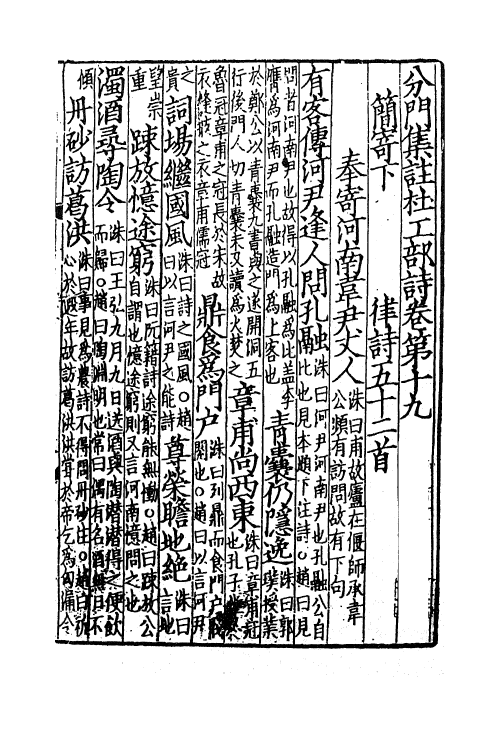 分門集註杜工部詩卷第十九
簡寄下 律詩五十二首
奉寄河南韋尹丈人 洙曰甫故廬在偃師承韋公頻有訪問故有下句
有客傳河尹逢人問孔融 洙曰河尹河南尹也孔融公自比也見本題下注詩○趙曰見
問者河南尹也故得以孔融為比盖李膺為河南尹而孔融造門為上客也 青囊仍隱逸 洙曰郭璞授業
於鄭公以青囊九書與之遂開洞五行後門人切青囊未又讀為火焚之 章甫尚西東 洙曰章甫冠也孔子
魯冠章甫之冠長於宋故衣縫掖之衣章甫儒冠 鼎食為門户 洙曰列鼎而食門户閱也○趙曰以言河尹
之貴 詞場繼國風 洙曰詩之國風○趙曰以言河尹之能詩 尊榮瞻地絶 洙曰言地
望崇重 踈放憶途窮 洙曰阮籍詩途窮能無慟○趙曰踈放公自謂也憶途窮則又言河南憶問之也
濁酒尋陶令 洙曰王弘九月九日送酒與陶潜潜得之便飲而歸○趙曰陶淵明也常曰偶有名酒無夕不
傾 丹砂訪葛洪 洙曰事見為農詩不得問丹砂注○趙曰訪心於遐年故訪葛洪洪嘗求於帝乞為勾漏令